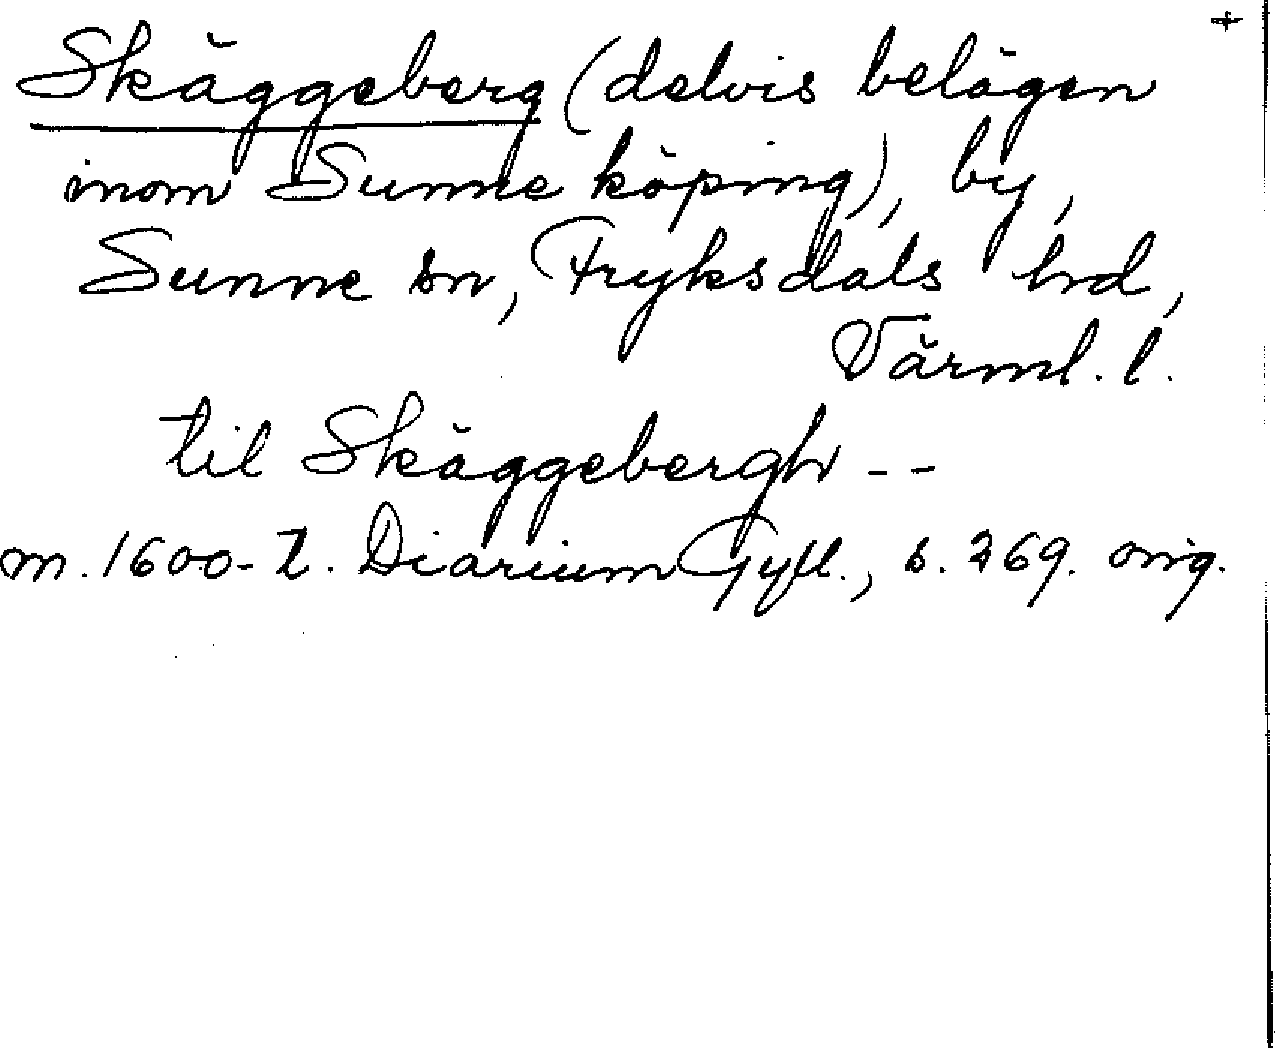 +
Skäggeberg (delvis belägen
inom Sunne köping), by,
Sunne sn, Fryksdals hd,
Värml. l.
til Skäggebergh --
m. 1600-t. Diarium Gyll., s. 269. orig.